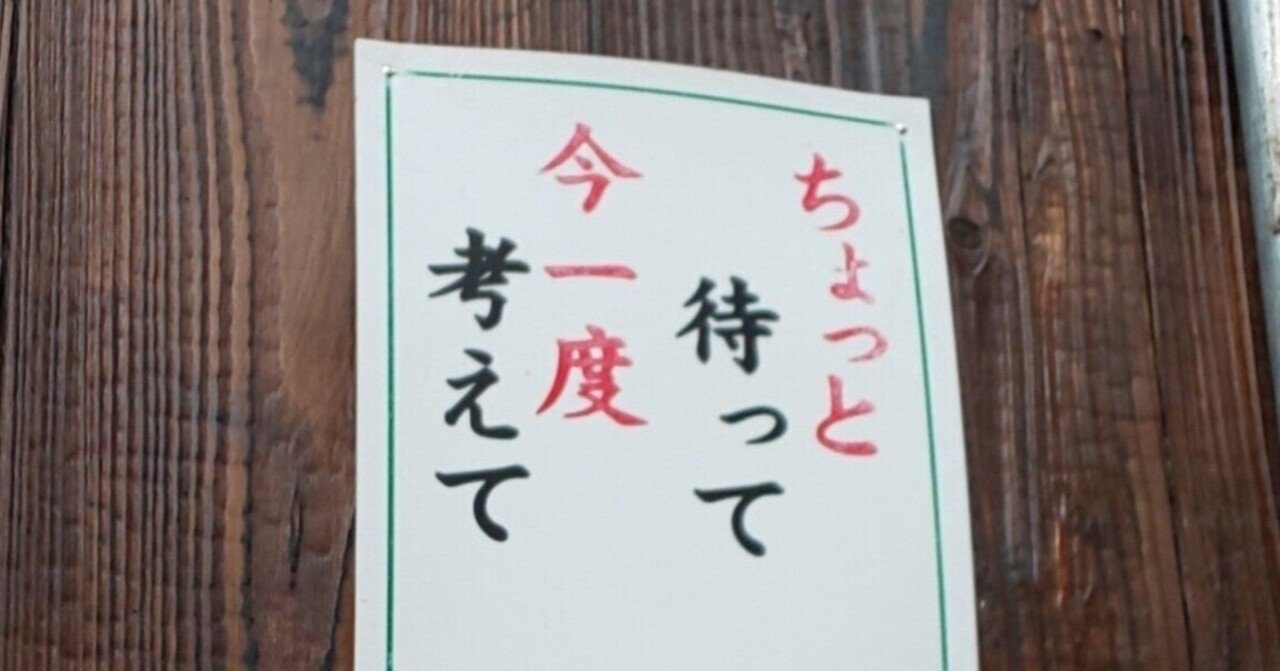 ちょっと
待って
今一度
考えて